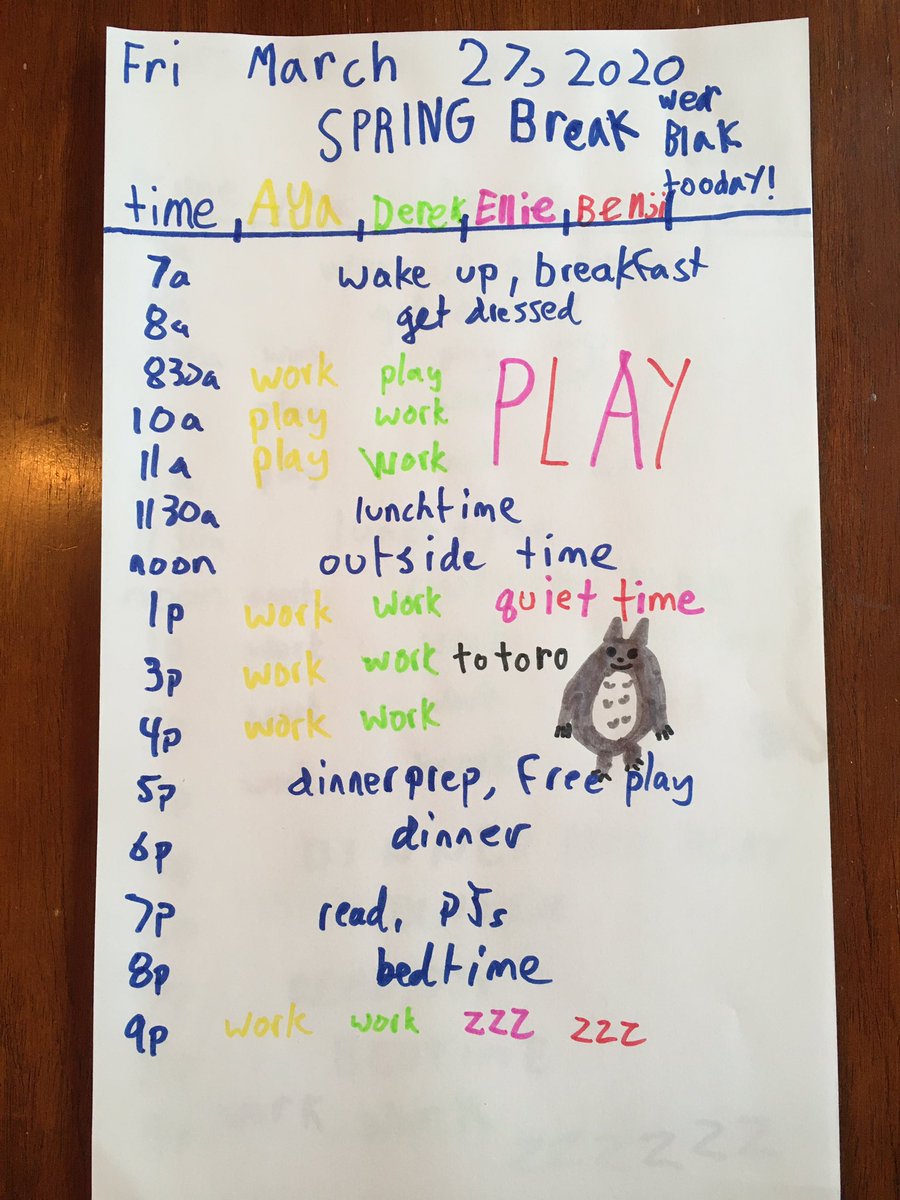 Fri March 27, 2020
SPRING Break wear
Blak
tooday!
time, Aya, Derek, Ellie, Benji
7a wake up, breakfast
8a get dressed
830a work play PLAY
10a play work
11a play work
1130a lunchtime
noon outside time
1p work work quiet time
3p work work totoro
4p work work
5p dinnerprep, Free play
6p dinner
7p read, PJs
8p bedtime
9p work work zzz zzz